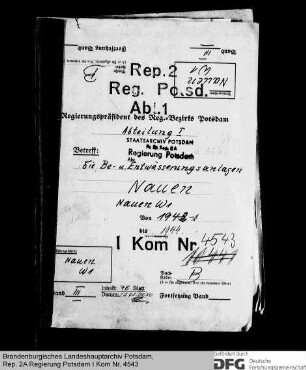 Rep. 2
Reg. Potsd.
Abt.1
Regierungspräsident des Reg.-Bezirks Potsdam
Abteilung I
STAATSARCHIV POTSDAM
Pr. Br. Rep. 2A
Regierung Potsdam
Betreff:
Die Be- u. Entwässerungsanlagen
Nauen
Nauen W1
Von 1942
bis 1944
I Kom Nr. 4543
Nauen
W1
Band III
Inhalt: 76 Blatt
Fortsetzung Band
Band III
Nauen
W1
Brandenburgisches Landeshauptarchiv Potsdam,
Rep. 2A Regierung Potsdam I Kom Nr. 4543
Gefördert durch
DFG Deutsche
Forschungsgemeinschaft